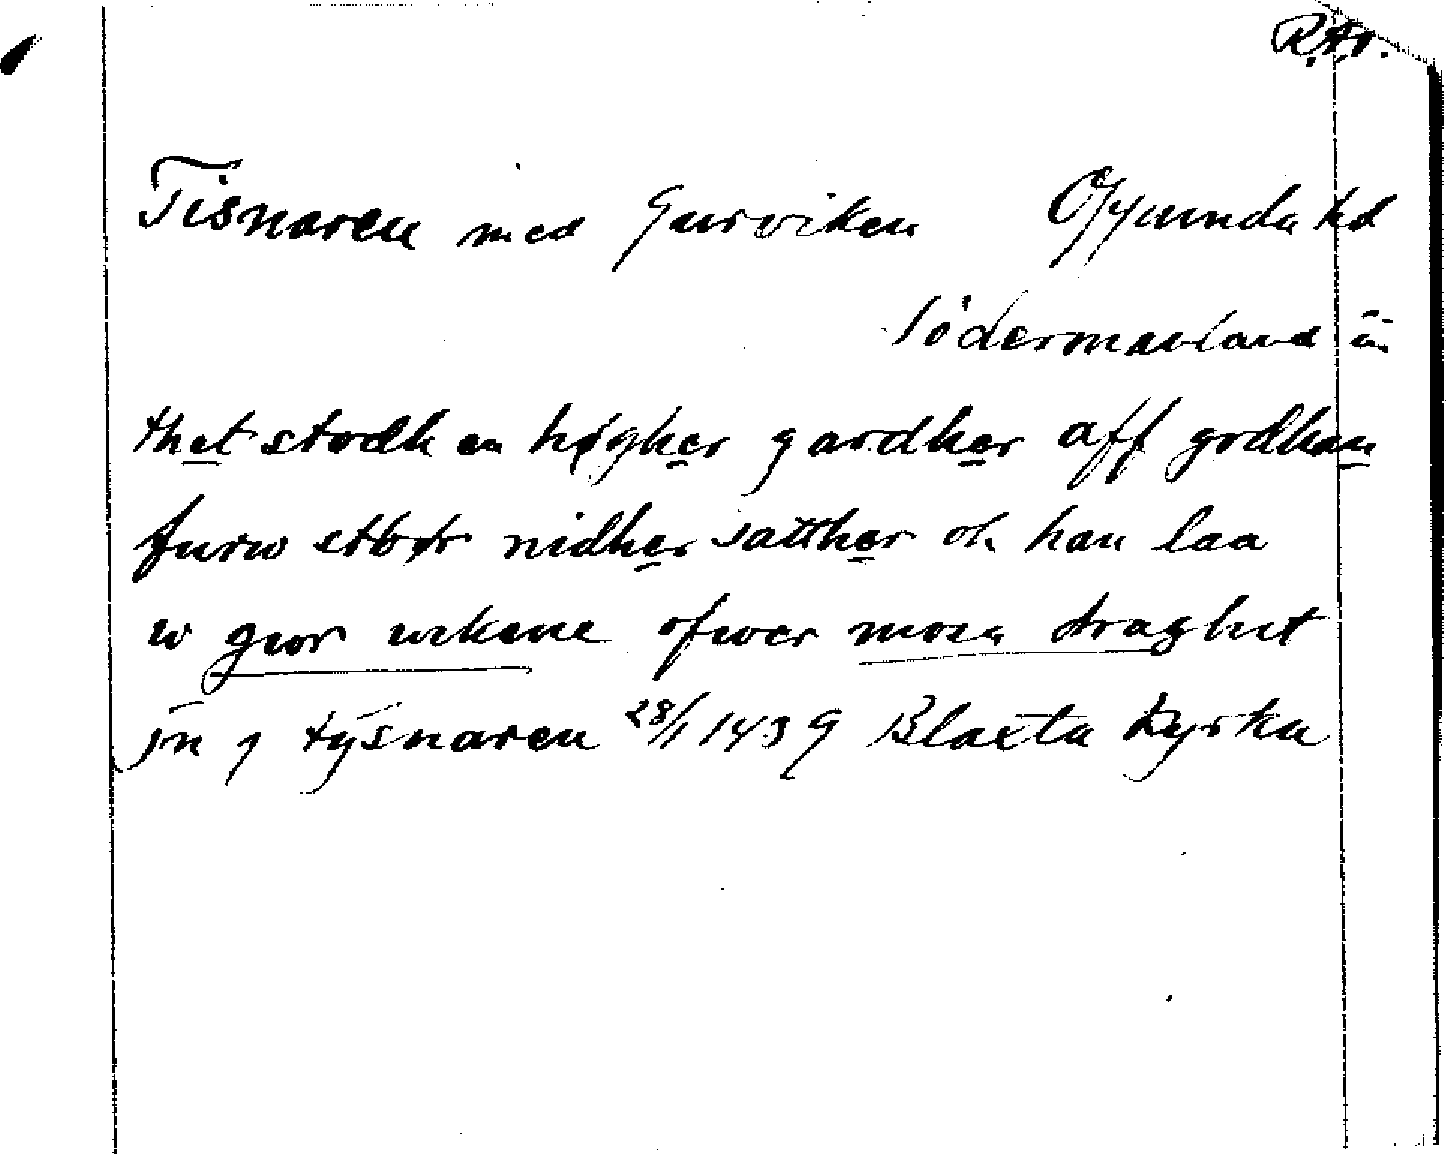 RAp.
Tisnaren med Gurviken Oppunda hd
Södermanland
thet stodh en høgher gardher aff godhan
furw stokr nidher satther oh han laa
w gwr wikene ofwer mosa draghit
jn j tysnaren 28/1 1439 Blaxta kyrka